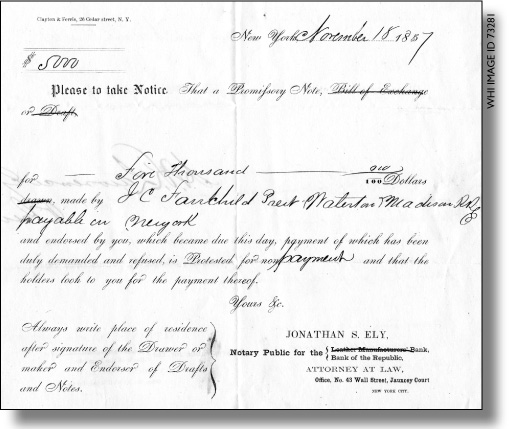 Clayton & Ferris, 26 Cedar street, N. Y.
New York November 18 1857
$ 5000
Please to take Notice That a Promissory Note, Bill of Exchange
or Draft,
for Five Thousand 00/100 Dollars
drawn, made by J C Fairchild Prest Waterton & Madison R.R.
payable in Newyork
and endorsed by you, which became due this day, payment of which has been
duly demanded and refused, is Protested for non payment and that the
holders look to you for the payment thereof.
Yours &c.
Always write place of residence
after signature of the Drawer or
maker and Endorser of Drafts
and Notes.
JONATHAN S. ELY,
Notary Public for the Leather Manufacturers' Bank,
Bank of the Republic,
ATTORNEY AT LAW,
Office, No. 43 Wall Street, Jauncey Court
NEW YORK CITY.
WHI IMAGE ID 73281